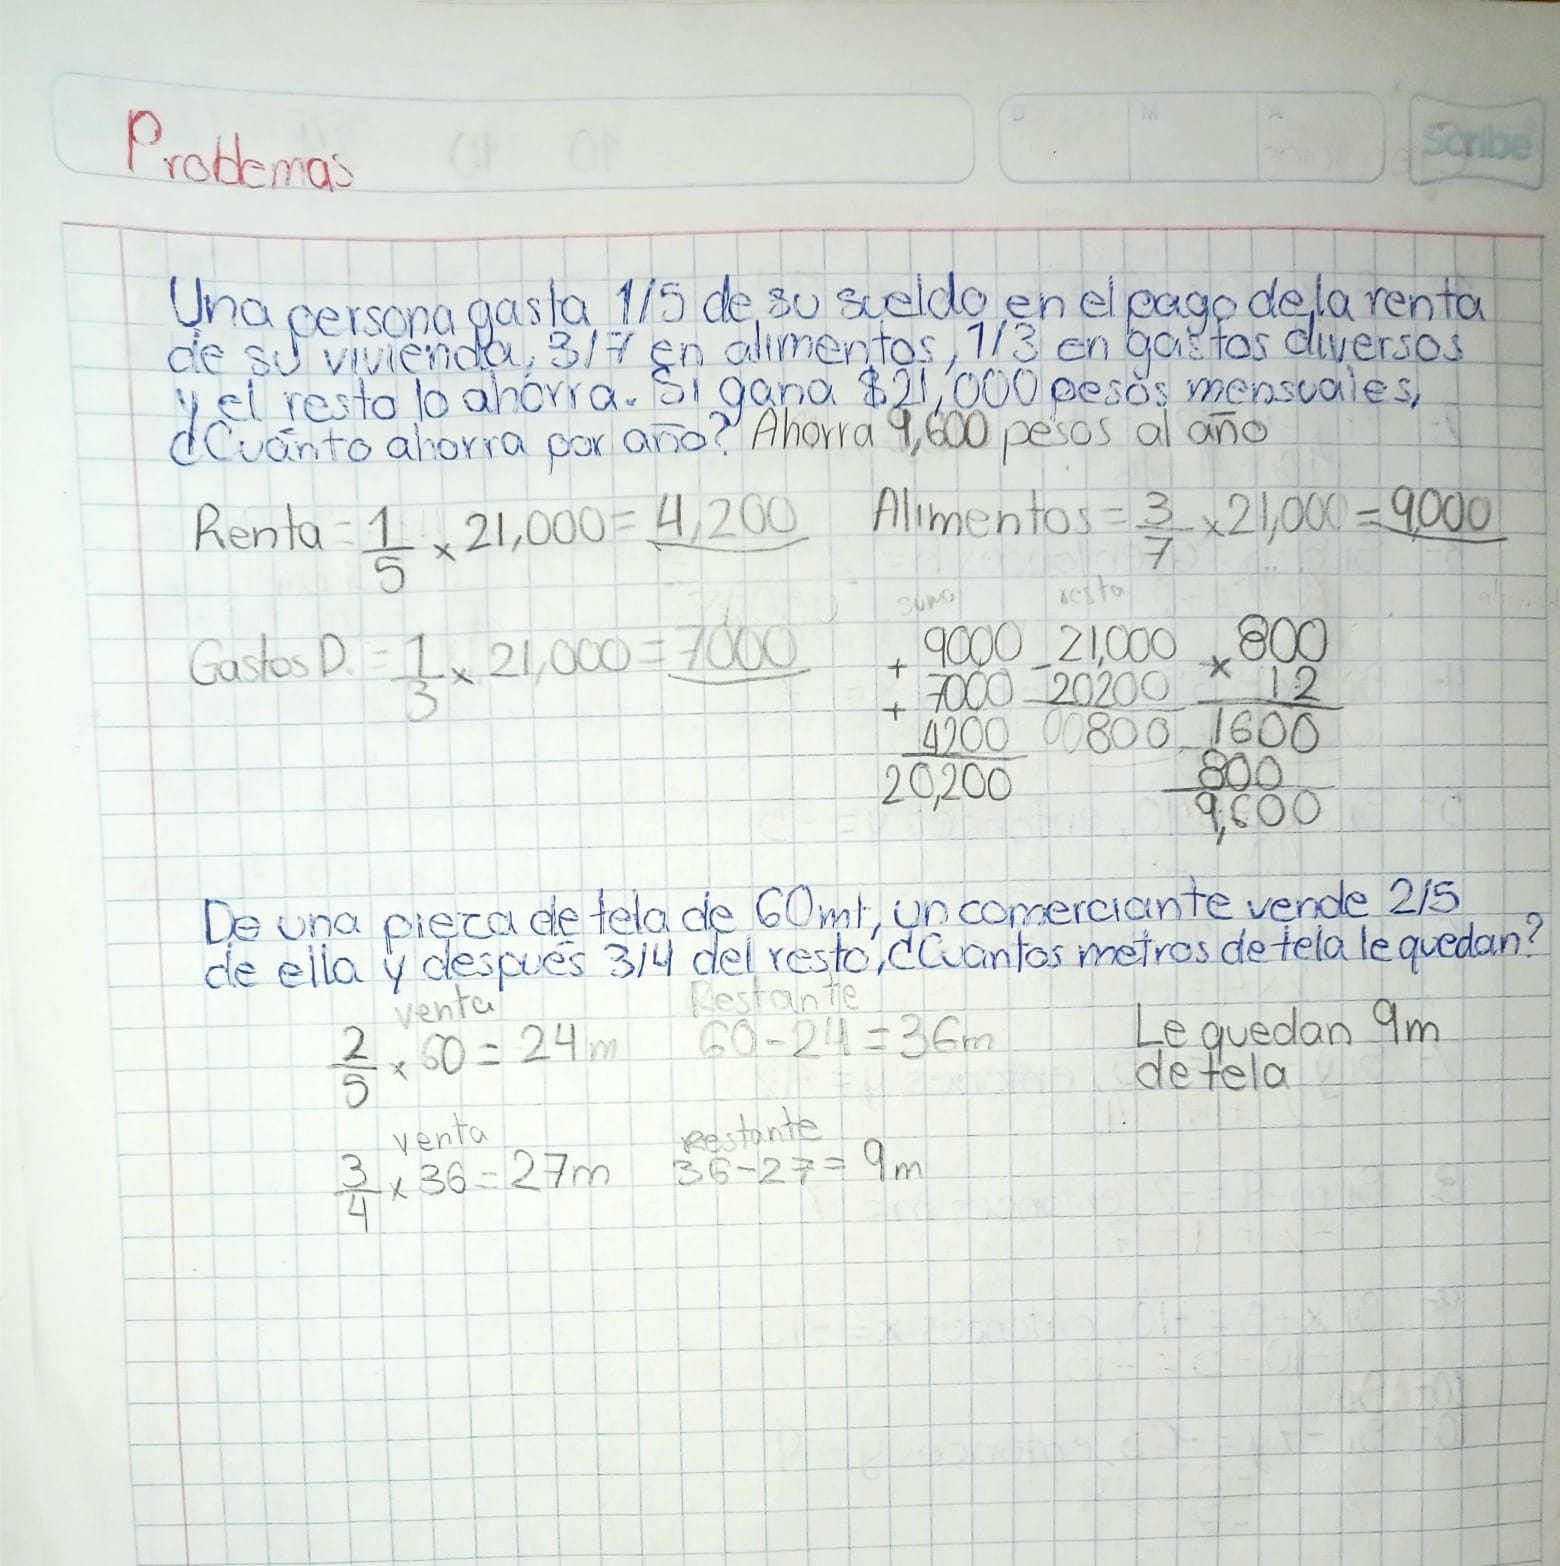 Problemas
D M A
Scribe
Una persona gasta 1/5 de su sueldo en el pago de la renta
de su vivienda, 3/7 en alimentos, 1/3 en gastos diversos
y el resto lo ahorra. Si gana $21,000 pesos mensuales,
¿Cuánto ahorra por año? Ahorra 9,600 pesos al año
Renta = 1/5 x 21,000 = 4,200 Alimentos = 3/7 x 21,000 = 9,000
Gastos D. = 1/3 x 21,000 = 7000
suma resta
+ 9000 - 21,000 x 800
+ 7000 20200 12
4200 00800 1600
20,200 800
9,600
De una pieza de tela de 60 mt, un comerciante vende 2/5
de ella y después 3/4 del resto, ¿Cuantos metros de tela le quedan?
venta Restante
2/5 x 60 = 24m 60 - 24 = 36m Le quedan 9m
de tela
venta Restante
3/4 x 36 = 27m 36 - 27 = 9m